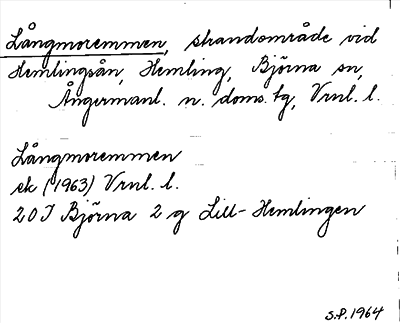 Långmoremmen, strandområde vid
Hemlingsån, Hemling, Björna sn,
Ångermanl. n. doms. tg, Vrnl. l.
Långmoremmen
ek (1963) Vrnl. l.
20 I Björna 2 g Lill-Hemlingen
S.P. 1964